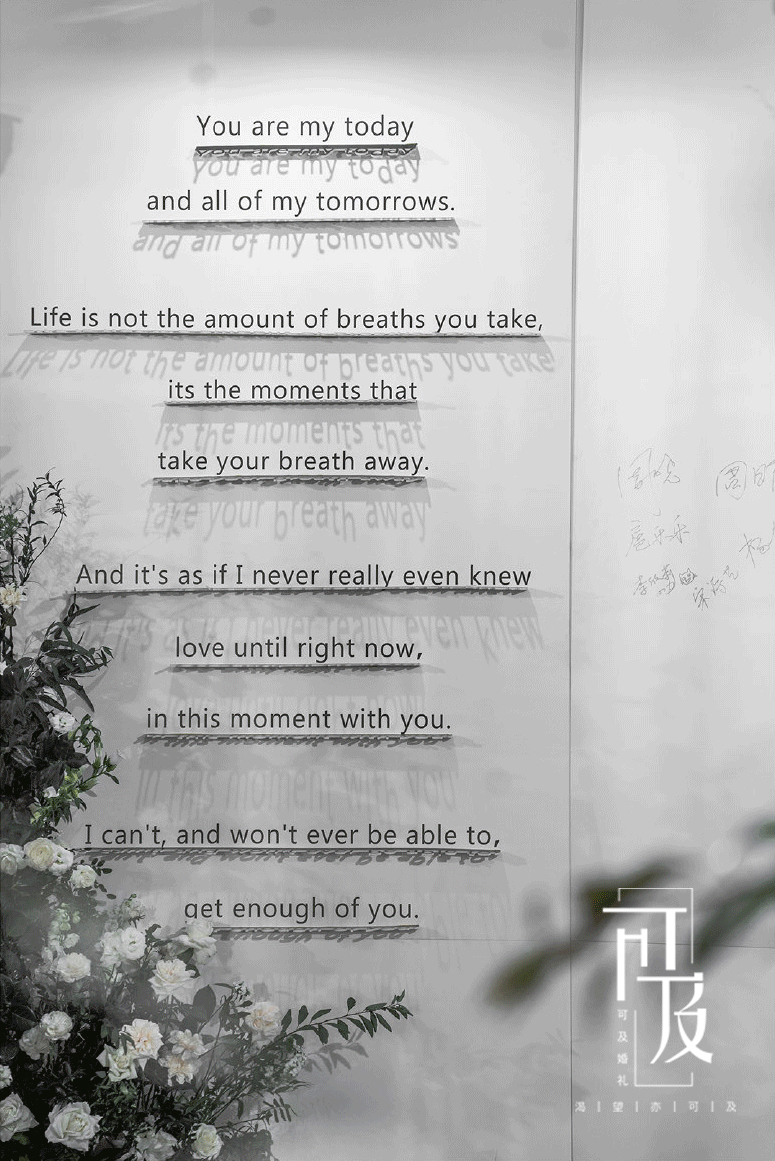 You are my today
and all of my tomorrows.
Life is not the amount of breaths you take,
its the moments that
take your breath away.
And it's as if I never really even knew
love until right now,
in this moment with you.
I can't, and won't ever be able to,
get enough of you.
可及
可及婚礼
渴|望|亦|可|及